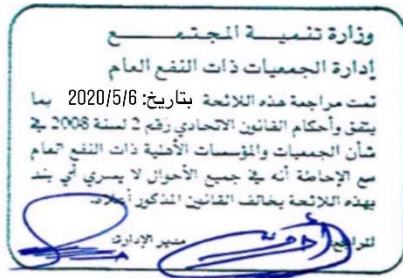 وزارة تنميــــة المجتمــــــع
إدارة الجمعيات ذات النفع العام
تمت مراجعة هذه اللائحة بتاريخ: 2020/5/6 بما
يتفق وأحكام القانون الاتحادي رقم 2 لسنة 2008 في
شأن الجمعيات والمؤسسات الأهلية ذات النفع العام
مع الإحاطة أنه في جميع الأحوال لا يسري أي بند
بهذه اللائحة يخالف القانون المذكور أعلاه.
المراجع: مدير الإدارة: